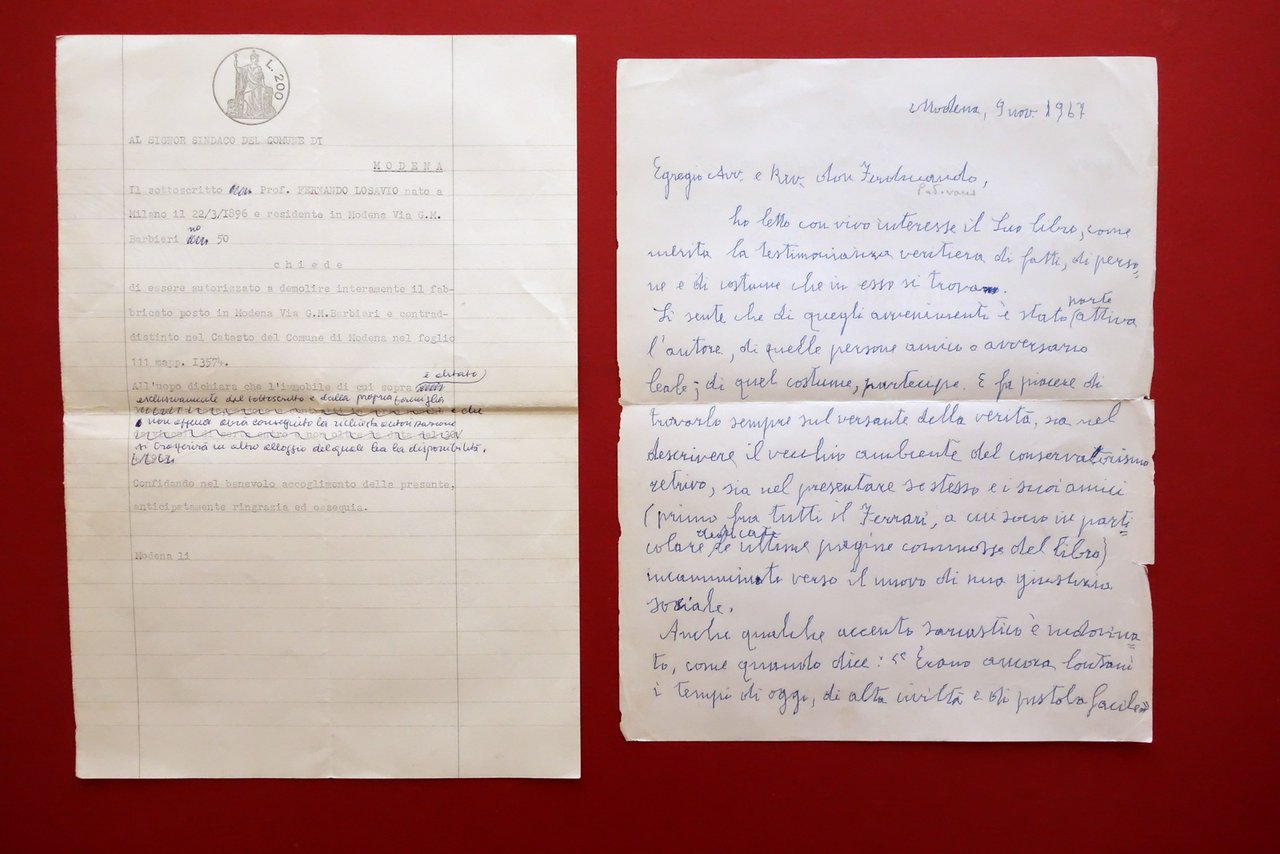 L. 200
AL SIGNOR SINDACO DEL COMUNE DI
MODENA
Il sottoscritto Prof. FERNANDO LOSAVIO nato a
Milano il 22/3/1896 e residente in Modena Via G.M.
Barbieri n° 50
chiede
di essere autorizzato a demolire interamente il fab-
bricato posto in Modena Via G.M.Barbieri e contrad-
distinto nel Catasto del Comune di Modena nel foglio
111 mapp. I3574.
è abitato
All'uopo dichiara che l'immobile di cui sopra
esclusivamente dal sottoscritto e dalla propria famiglia
e che
non appena avrà conseguito la richiesta autorizzazione
si trasferirà in altro alloggio del quale ha la disponibilità.
Confidando nel benevolo accoglimento della presente,
anticipatamente ringrazia ed ossequia.
Modena li
Modena, 9 nov. 1967
Egregio Avv. e Rev. don Ferdinando,
Padovani
ho letto con vivo interesse il Suo libro, come
merita la testimonianza veritiera di fatti, di perso=
ne e di costume che in esso si trova.
Si sente che di quegli avvenimenti è stato parte attiva
l'autore, di quelle persone amico o avversario
leale; di quel costume, partecipe. E fa piacere di
trovarlo sempre sul versante della verità, sia nel
descrivere il vecchio ambiente del conservatorismo
retrivo, sia nel presentare se stesso e i suoi amici
(primo fra tutti il Ferrari, a cui sono in parti=
colare dedicate le ultime pagine commosse del libro)
incamminato verso il nuovo di una giustizia
sociale.
Anche qualche accento sarcastico è indovina=
to, come quando dice: "Erano ancora lontani
i tempi di oggi, di alta civiltà e di pistola facile"